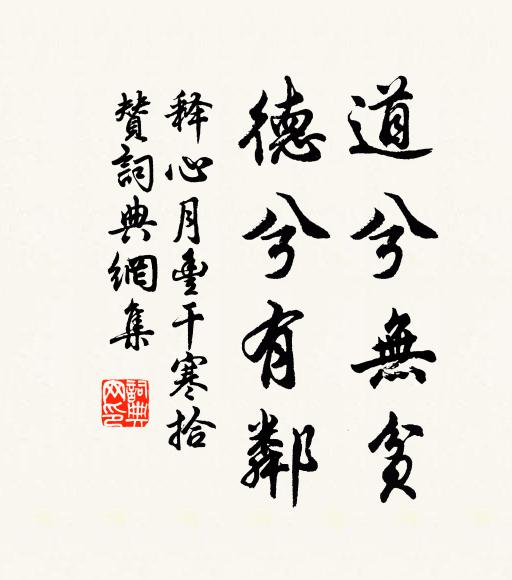 道兮無貧
德兮有鄰
释心月豊干寒拾
贊詞典網集
詞典
网印